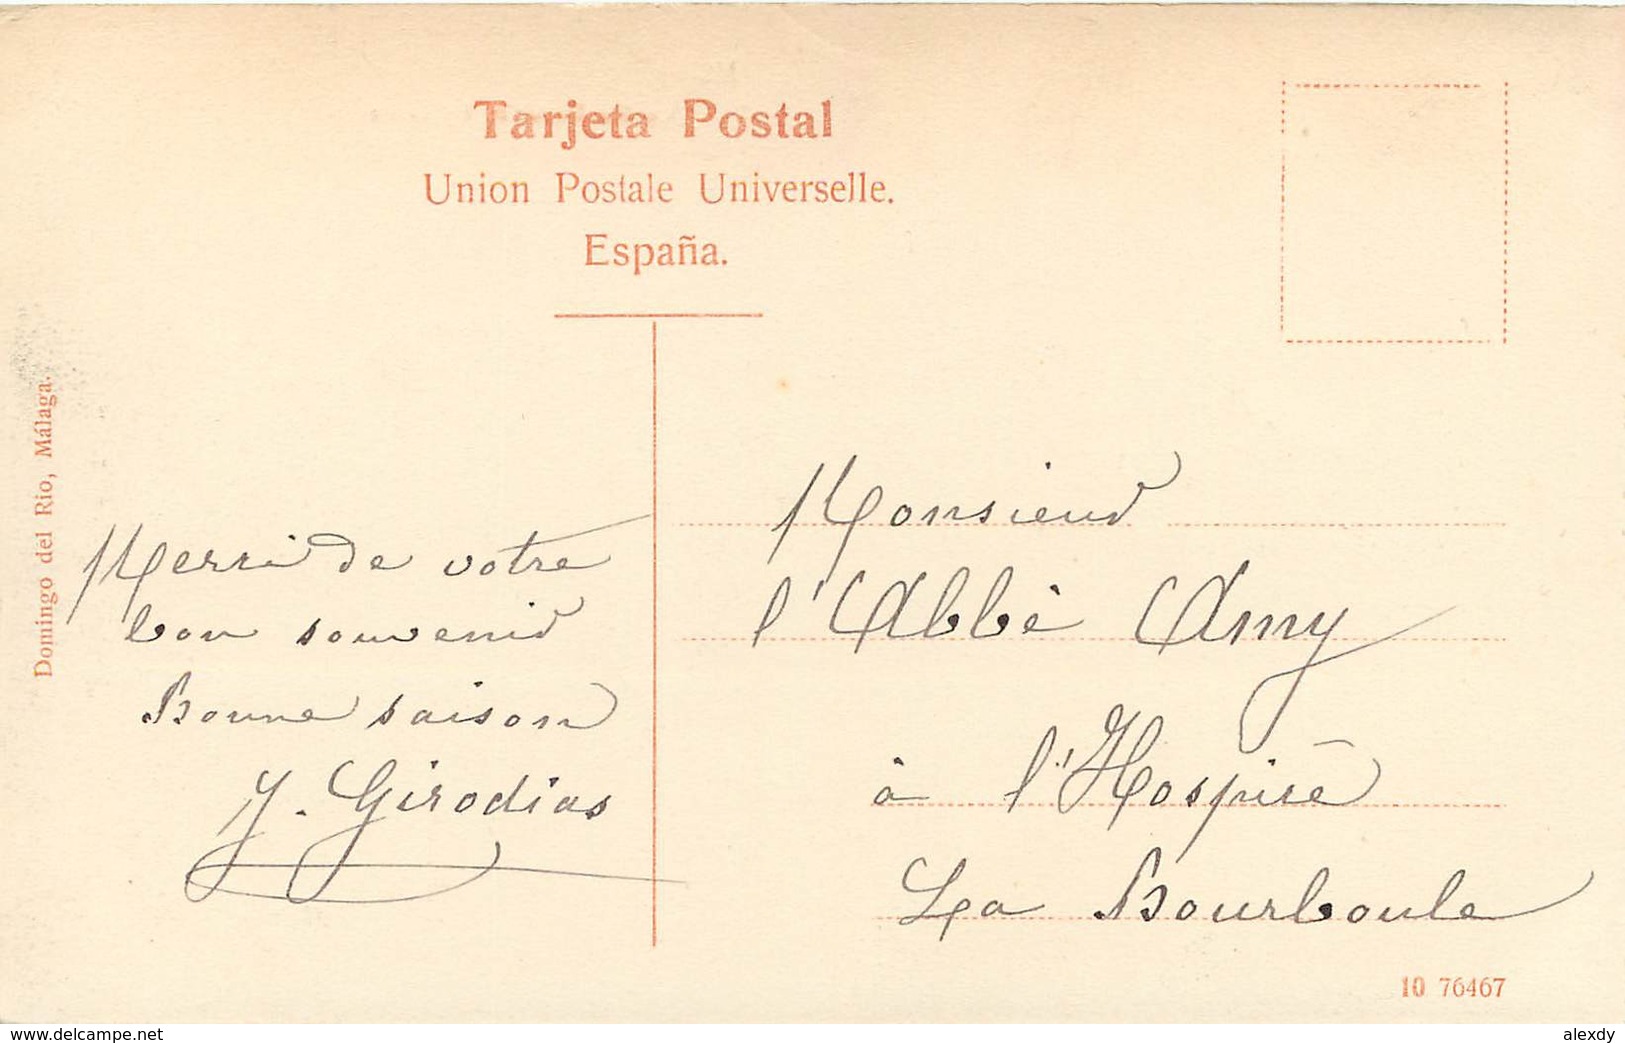 Tarjeta Postal
Union Postale Universelle.
España.
Domingo del Rio, Málaga.
Merci de votre
bon souvenir
Bonne saison
J. Girodias
Monsieur
l'Abbé Amy
à l'Hospice
La Bourboule
10 76467
www.delcampe.net
alexdy